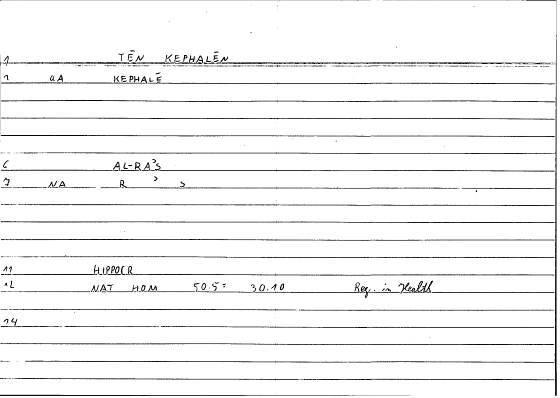 1 TĒN KEPHALĒN
2 aA KEPHALĒ
6 AL-RA'S
7 NA R ' S
11 HIPPOCR
12 NAT HOM 50.5= 30.10 Reg. in Health
14